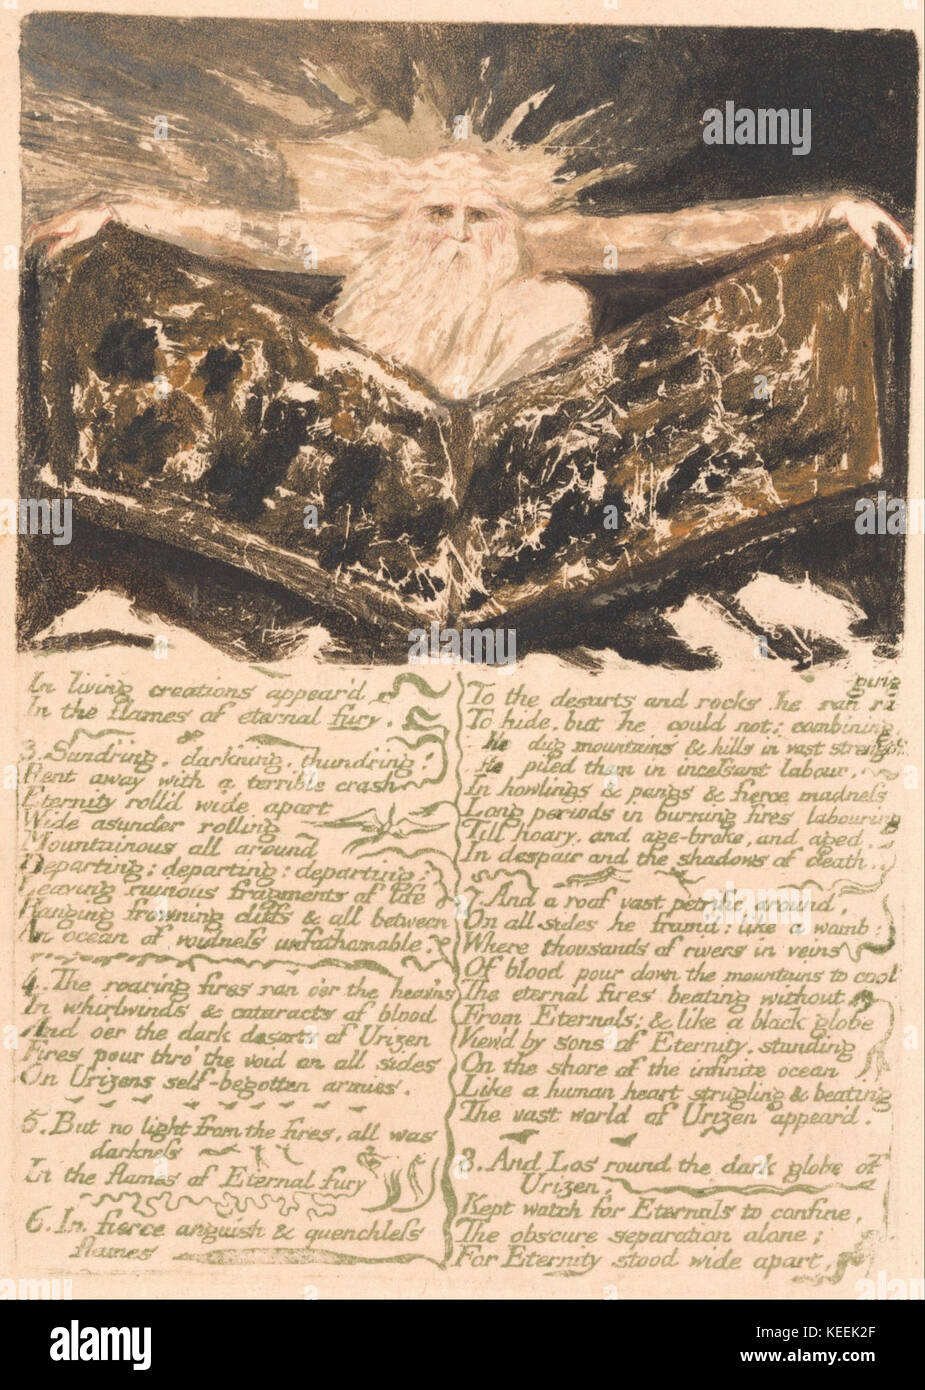 In living creations appear'd
In the flames of eternal fury.
3. Sundring, darkning, thundring;
Rent away with a terrible crash
Eternity roll'd wide apart
Wide asunder rolling
Mountainous all around
Departing; departing; departing:
Leaving ruinous fragments of life
Hanging frowning cliffs & all between
An ocean of voidness unfathomable.
4. The roaring fires ran o'er the heav'ns
In whirlwinds & cataracts of blood
And o'er the dark desarts of Urizen
Fires pour thro' the void on all sides
On Urizens self-begotten armies.
5. But no light from the fires, all was
darkness
In the flames of Eternal fury
6. In fierce anguish & quenchless
flames
To the desarts and rocks he ran
To hide, but he could not; combining
He dug mountains & hills in vast strength,
He piled them in incessant labour,
In howlings & pangs & fierce madness
Long periods in burning fires labouring
Till hoary, and age-broke, and aged,
In despair and the shadows of death.
7. And a roof vast petrific around,
On all sides he fram'd: like a womb;
Where thousands of rivers in veins
Of blood pour down the mountains to cool
The eternal fires beating without
From Eternals; & like a black globe
View'd by sons of Eternity, standing
On the shore of the infinite ocean
Like a human heart strugling & beating
The vast world of Urizen appear'd.
8. And Los round the dark globe of
Urizen,
Kept watch for Eternals to confine,
The obscure separation alone;
For Eternity stood wide apart,
alamy
alamy
Image ID: KEEK2F
www.alamy.com